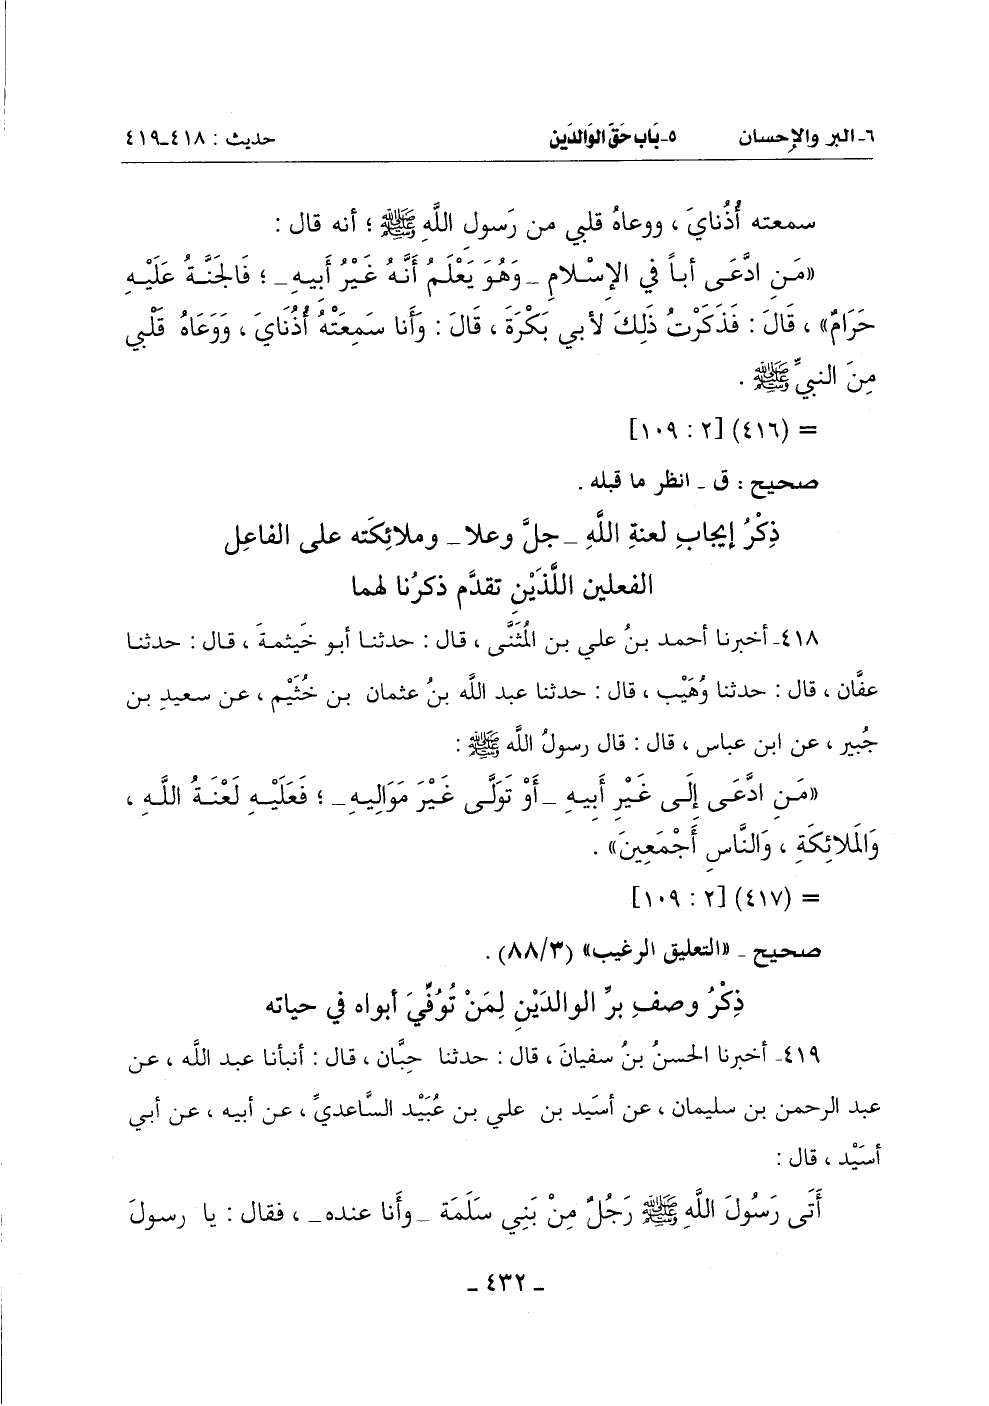 ٦- البر والإحسان ٥- بَاب حَقّ الوَالدَين حديث : ٤١٨-٤١٩
سمعته أُذُنايَ ، ووعاهُ قلبي من رَسول اللَّهِ ﷺ ؛ أنه قال :
«مَنِ ادَّعَى أباً في الإِسْلامِ _وَهُوَ يَعْلَمُ أَنَّهُ غَيْرُ أَبيهِ_ ؛ فَالجَنَّةُ عَلَيْهِ
حَرَامٌ» ، قَالَ : فَذَكَرْتُ ذَلِكَ لأبي بَكْرَةَ ، قَالَ : وَأَنا سَمِعَتْهُ أُذُنَايَ ، وَوَعَاهُ قَلْبي
مِنَ النبيِّ ﷺ .
= (٤١٦) [٢ : ١٠٩]
صحيح : ق _ انظر ما قبله .
ذِكْرُ إيجابِ لعنةِ اللَّهِ _جلَّ وعلا_ وملائِكَته على الفاعِل
الفعلين اللَّذَيْنِ تقدَّم ذكرُنا لهما
٤١٨- أخبرنا أحمد بنُ علي بن المُثَنَّى ، قال : حدثنا أبو خَيثمةَ ، قال : حدثنا
عفَّان ، قال : حدثنا وُهَيْب ، قال : حدثنا عبد اللَّه بنُ عثمان بن خُثَيْم ، عن سعيدِ بن
جُبير ، عن ابن عباس ، قال : قال رسولُ اللَّه ﷺ :
«مَنِ ادَّعَى إِلَى غَيْرِ أَبيهِ _أَوْ تَوَلَّى غَيْرَ مَوَالِيهِ_ ؛ فَعَلَيْهِ لَعْنَةُ اللَّهِ ،
وَالمَلائِكَةِ ، وَالنَّاسِ أَجْمَعِينَ» .
= (٤١٧) [٢ : ١٠٩]
صحيح _ «التعليق الرغيب» (٣/٨٨) .
ذِكْرُ وصفِ برِّ الوالدَيْنِ لِمَنْ تُوُفِّيَ أبواه في حياته
٤١٩- أخبرنا الحسنُ بنُ سفيانَ ، قال : حدثنا حِبَّان ، قال : أنبأنا عبد اللَّه ، عن
عبد الرحمن بن سليمان ، عن أسَيد بن علي بن عُبَيْد السَّاعديِّ ، عن أبيه ، عن أبي
أسَيْد ، قال :
أَتَى رَسُولَ اللَّهِ ﷺ رَجُلٌ مِنْ بَنِي سَلَمَة _وأَنا عنده_ ، فقال : يا رسولَ
_ ٤٣٢ _